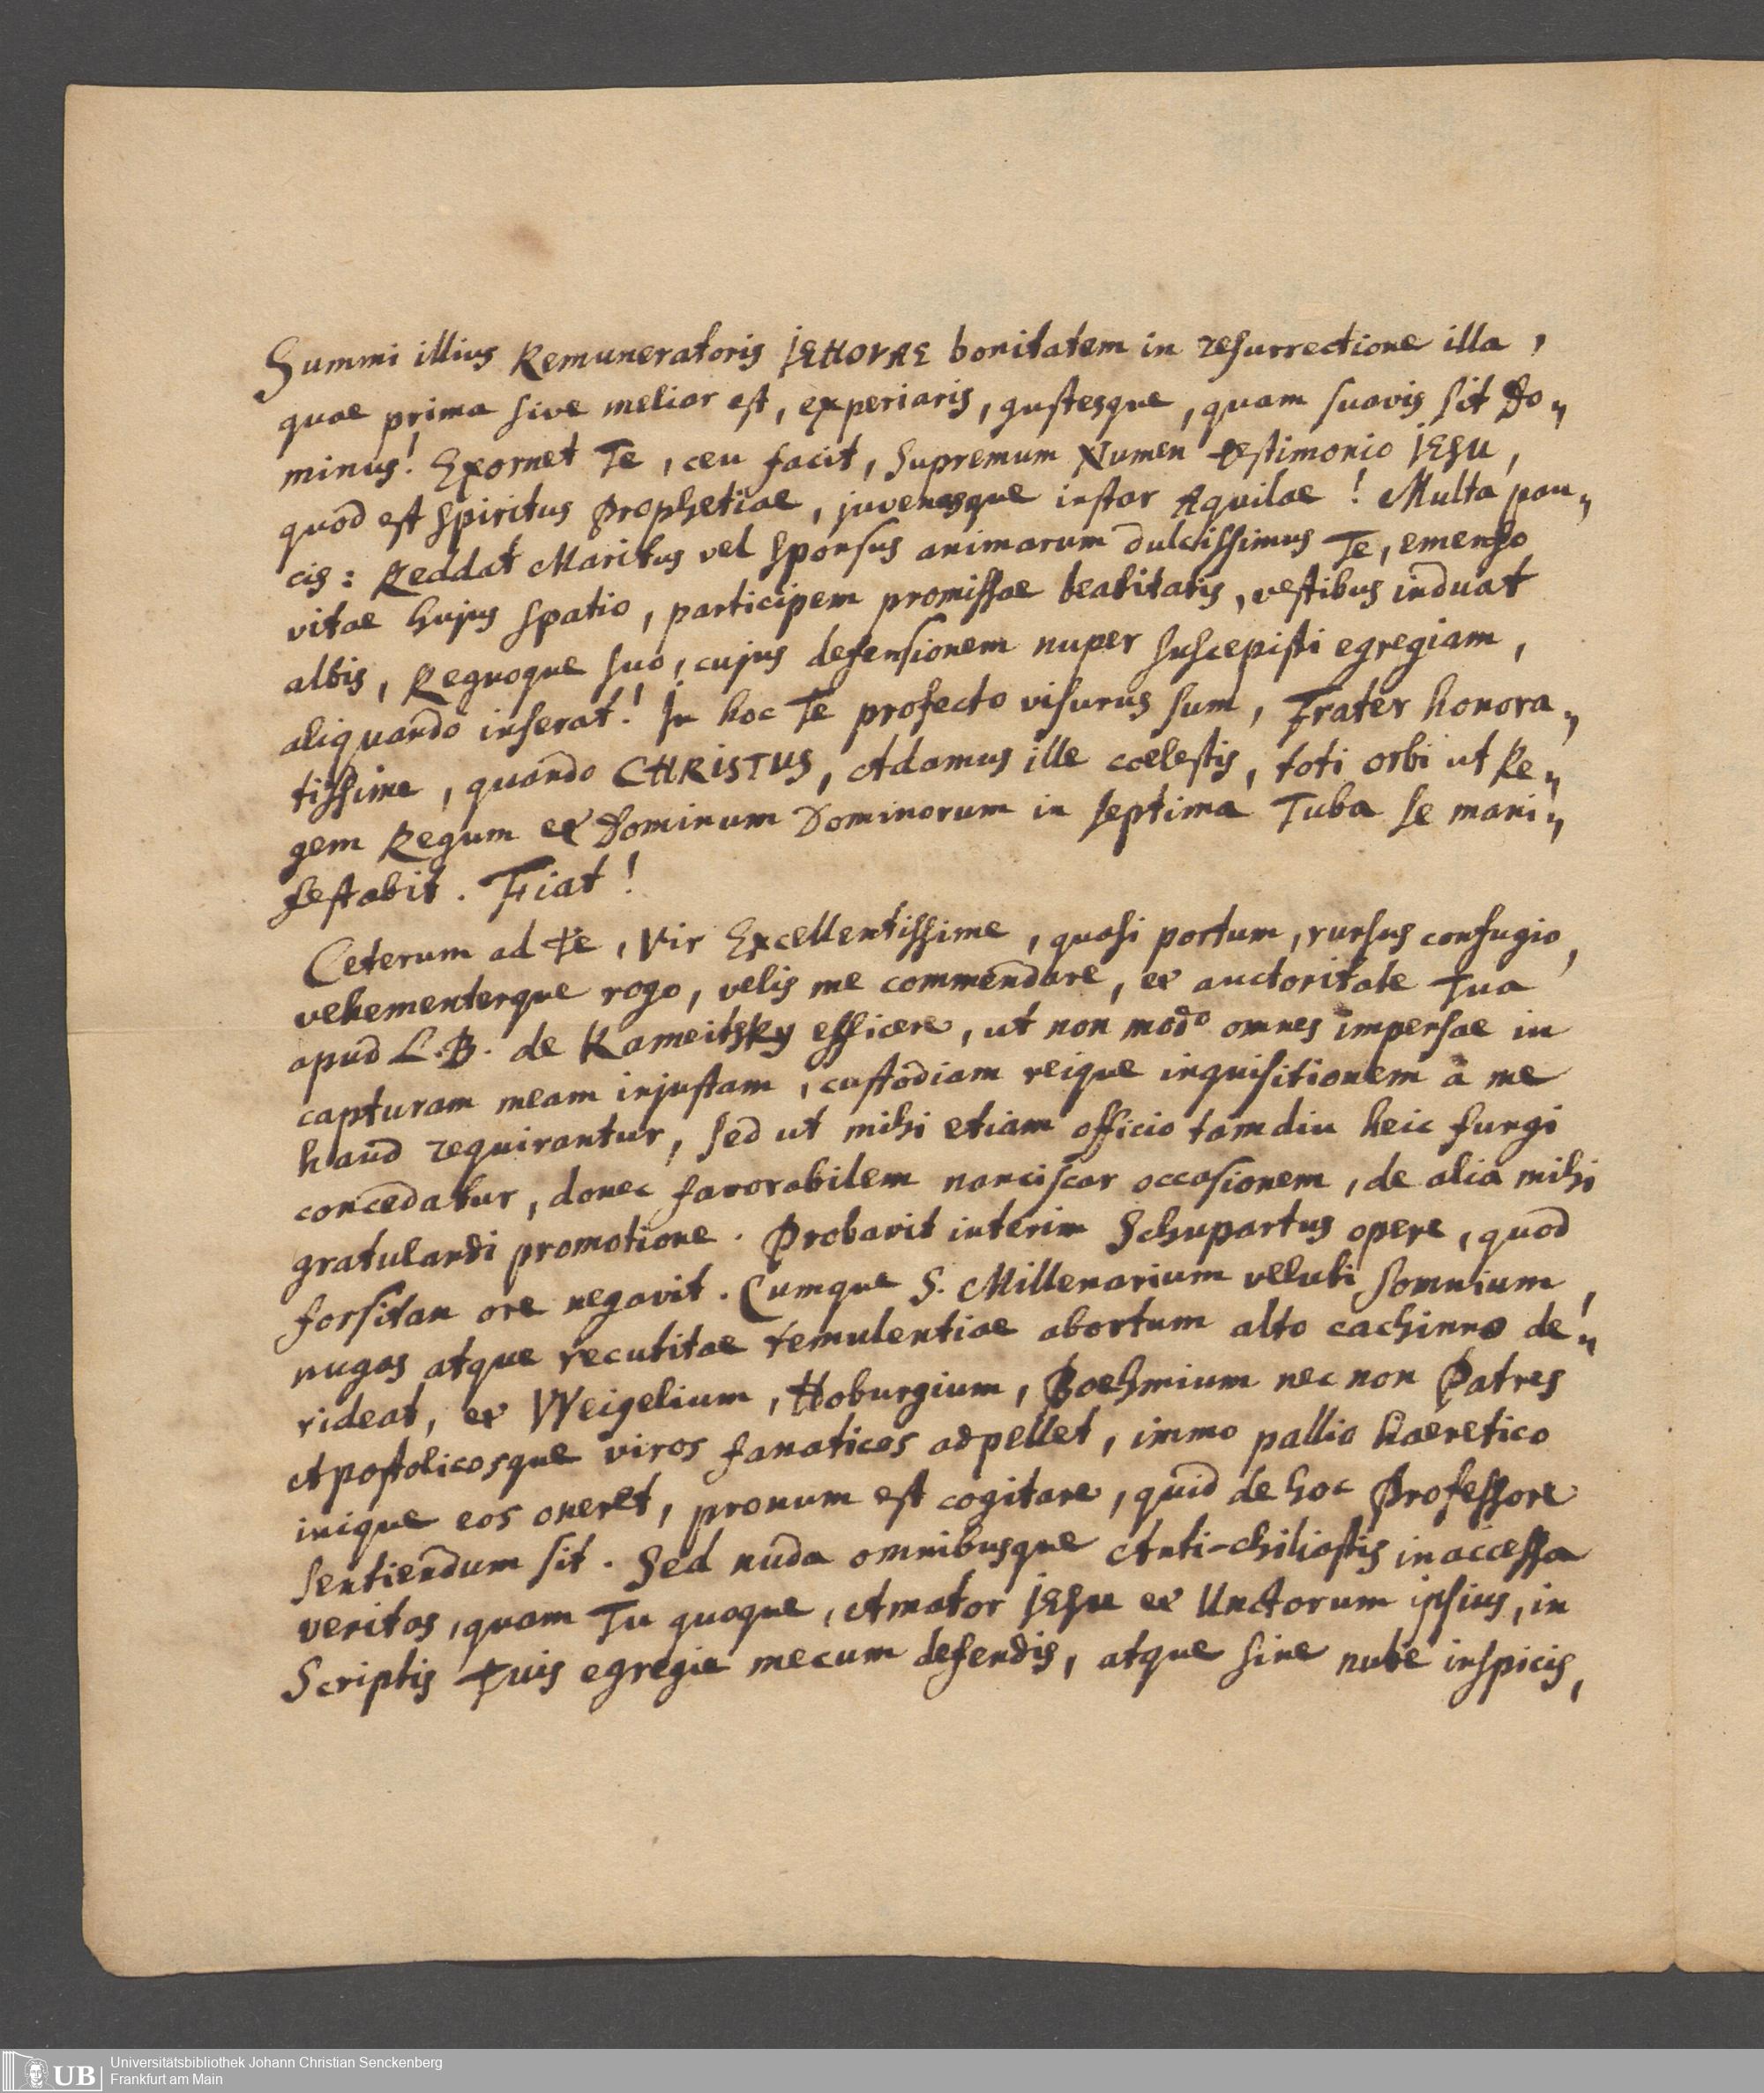 Summi illius Remuneratoris JEHOVAE bonitatem in resurrectione illa,
quae prima sive melior est, experiaris, gustesque, quam suavis sit Do„
minus! Exornet Te, ceu facit, Supremum Numen testimonio JESU,
quod est Spiritus Prophetiae, juvenesque instar Aquilae! Multa pau„
cis: Reddat Maritus vel Sponsus animarum dulcissimus Te, emenso
vitae hujus spatio, participem promissae beatitatis, vestibus induat
albis, Regnoque suo, cujus defensionem nuper suscepisti egregiam,
aliquando inserat! In hoc Te profecto visurus sum, Frater honora„
tissime, quando CHRISTUS, Adamus ille coelestis, toti orbi ut Re„
gem Regum et Dominum Dominorum in septima Tuba se mani„
festabit. Fiat!
Ceterum ad Te, Vir Excellentissime, quasi portum, rursus confugio,
vehementerque rogo, velis me commendare, et auctoritate Tua
apud L. B. de Kameitsky efficere, ut non modo omnes impensae in
capturam meam injustam, custodiam reique inquisitionem à me
haud requirantur, sed ut mihi etiam officio tamdiu heic fungi
concedatur, donec favorabilem nanciscar occasionem, de alia mihi
gratulandi promotione. Probavit interim Schupartus opere, quod
forsitan ore negavit. Cumque S. Millenarium veluti somnium,
nugas atque recutitae temulentiae abortum alto cachinno de„
rideat, et Weigelium, Hoburgium, Boehmium nec non Patres
Apostolicosque viros fanaticos adpellet, immo pallio haeretico
inique eos oneret, pronum est cogitare, quid de hoc Professore
sentiendum sit. Sed nuda omnibusque Anti-chiliastis inaccessa
veritas, quam Tu quoque, Amator JESU et Unctorum ipsius, in
Scriptis Tuis egregie mecum defendis, atque sine nube inspicis,
Universitätsbibliothek Johann Christian Senckenberg
Frankfurt am Main
UB